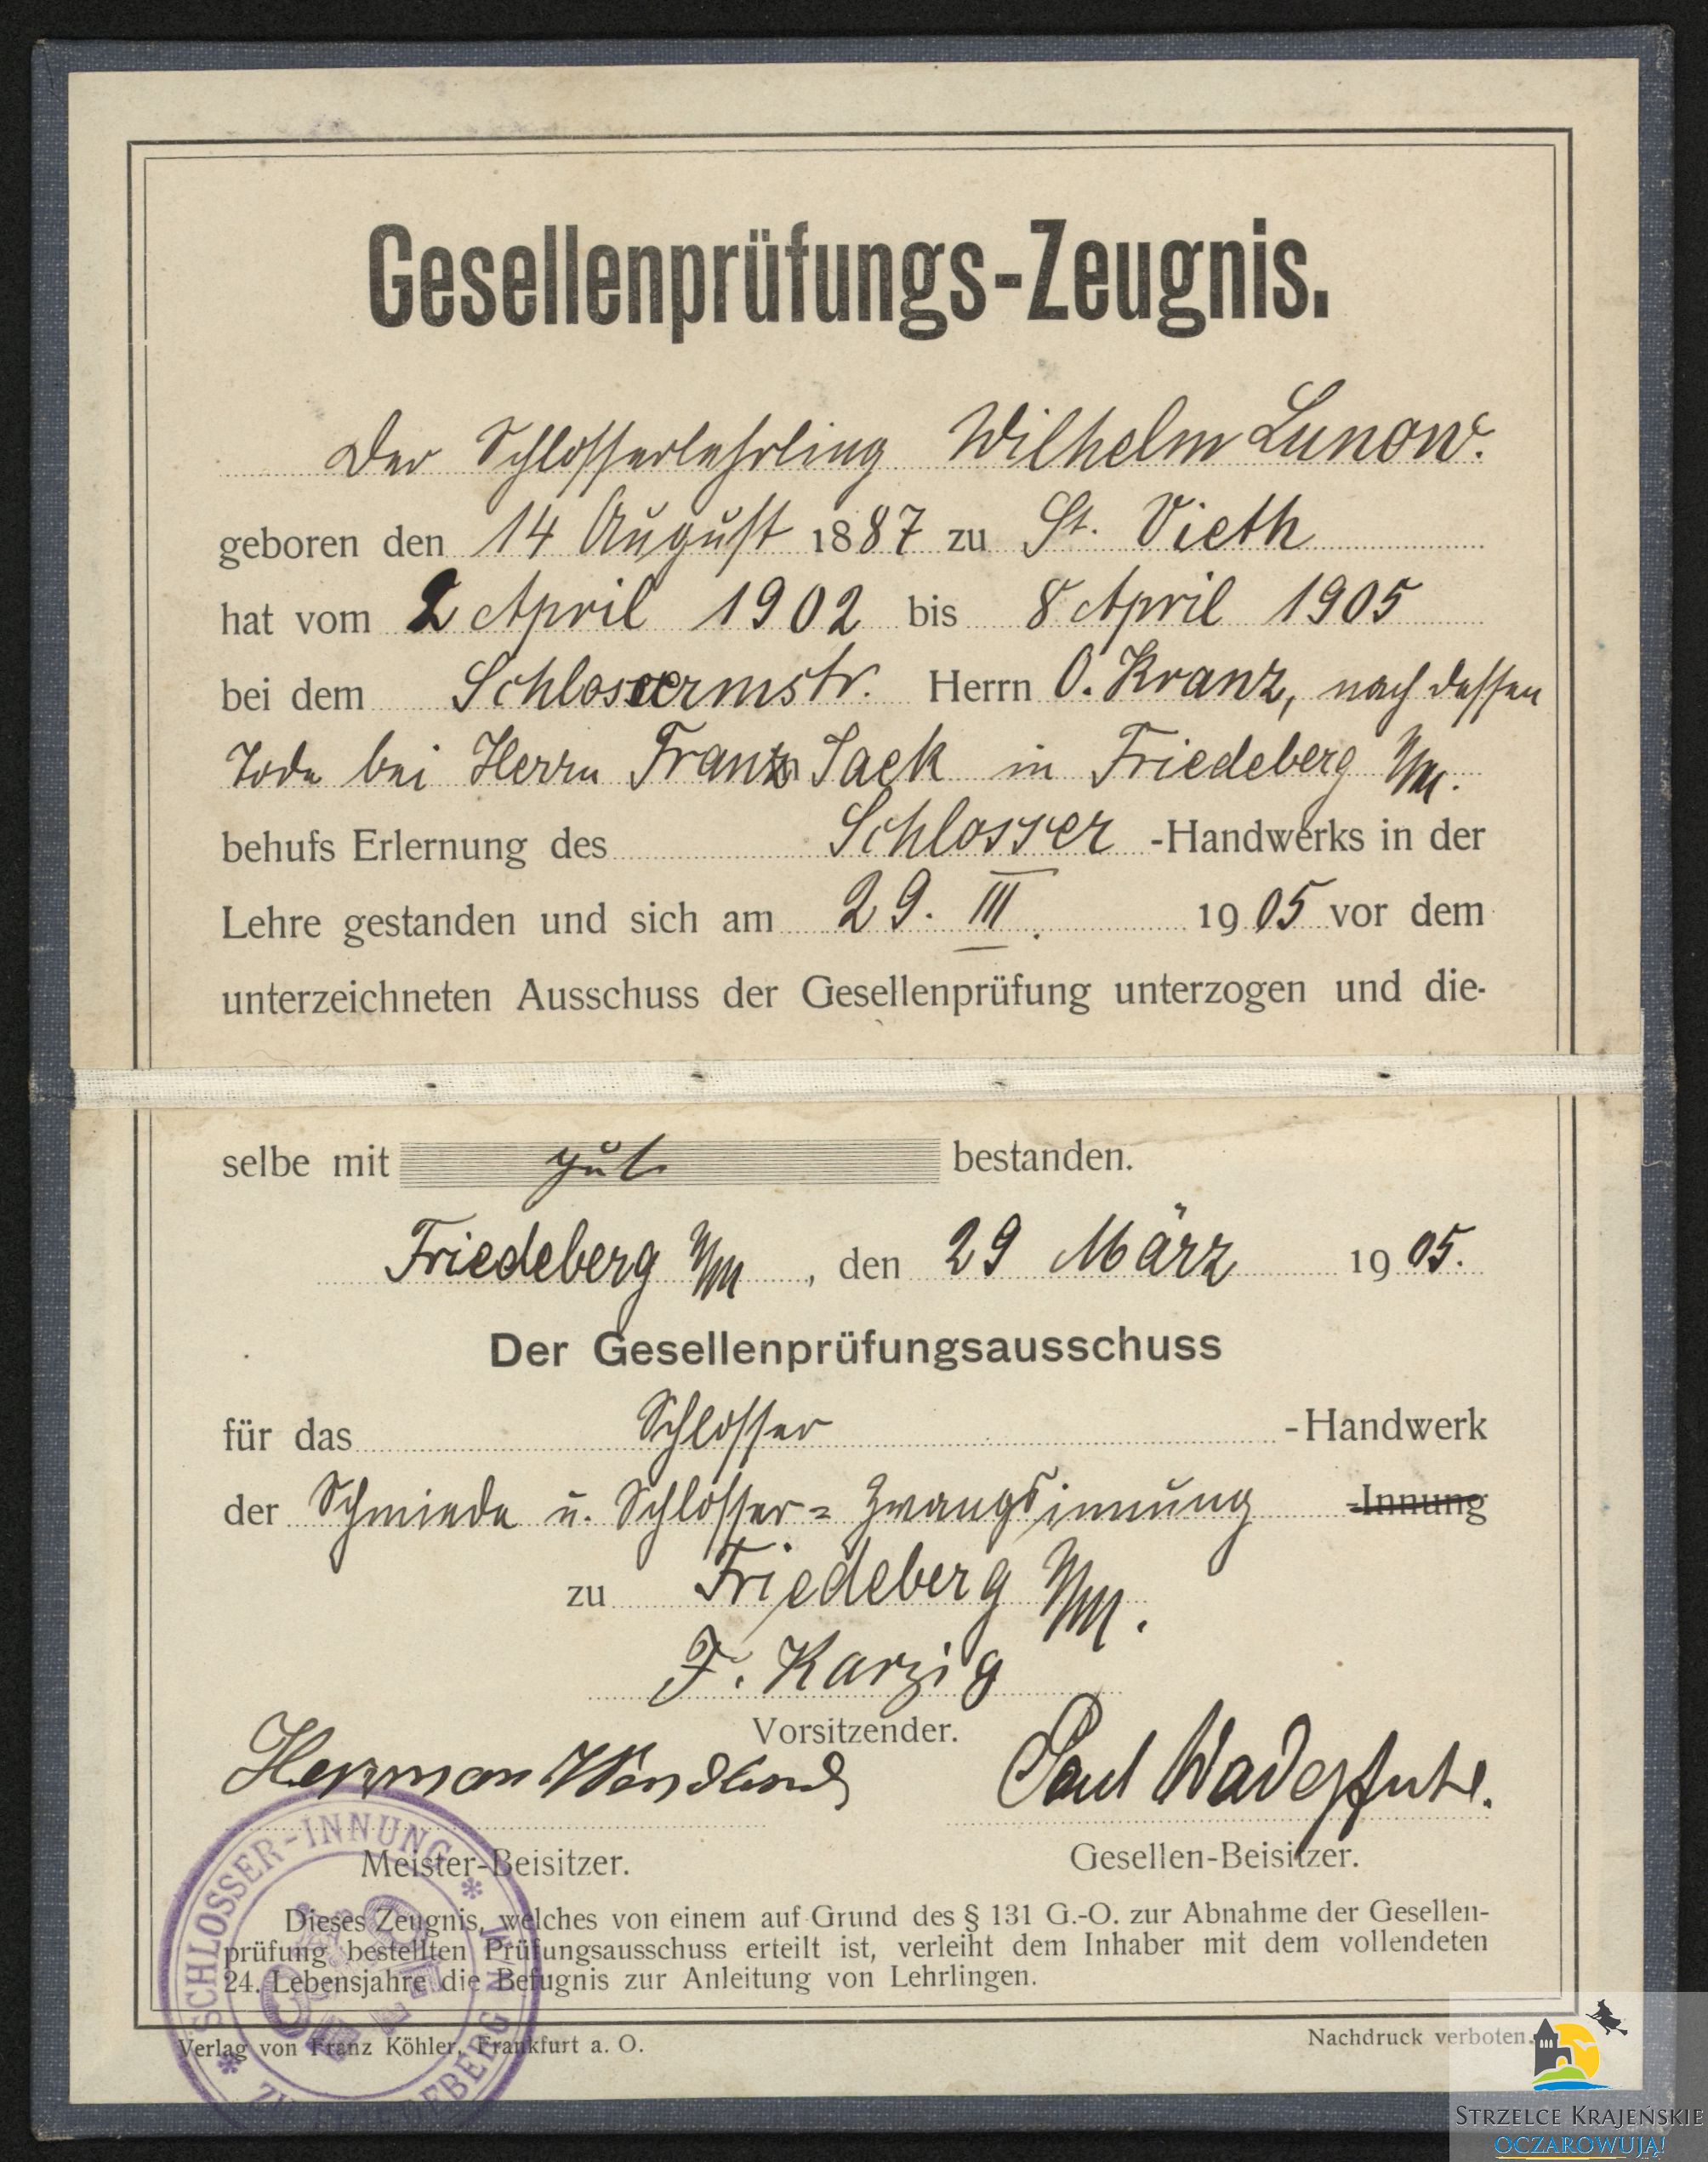 Gesellenprüfungs-Zeugnis.
Der Schlosserlehrling Wilhelm Lunow.
geboren den 14 August 1887 zu St. Vieth
hat vom 2 April 1902 bis 8 April 1905
bei dem Schlossermstr. Herrn O. Kranz, nach dessen
Tode bei Herrn Franz Sack in Friedeberg N/M.
behufs Erlernung des Schlosser -Handwerks in der
Lehre gestanden und sich am 29. III. 1905 vor dem
unterzeichneten Ausschuss der Gesellenprüfung unterzogen und die-
selbe mit gut bestanden.
Friedeberg N/M, den 29 März 1905.
Der Gesellenprüfungsausschuss
für das Schlosser -Handwerk
der Schmiede u. Schlosser= Zwangsinnung -Innung
zu Friedeberg N/M.
F. Karzig
Vorsitzender.
Herrman Wendland Paul
Meister-Beisitzer. Gesellen-Beisitzer.
Dieses Zeugnis, welches von einem auf Grund des § 131 G.-O. zur Abnahme der Gesellen-
prüfung bestellten Prüfungsausschuss erteilt ist, verleiht dem Inhaber mit dem vollendeten
24. Lebensjahre die Befugnis zur Anleitung von Lehrlingen.
Verlag von Franz Köhler, Frankfurt a. O. Nachdruck verboten.
* SCHLOSSER-INNUNG *
ZU FRIEDEBERG N/M
STRZELCE KRAJEŃSKIE
OCZAROWUJĄ!